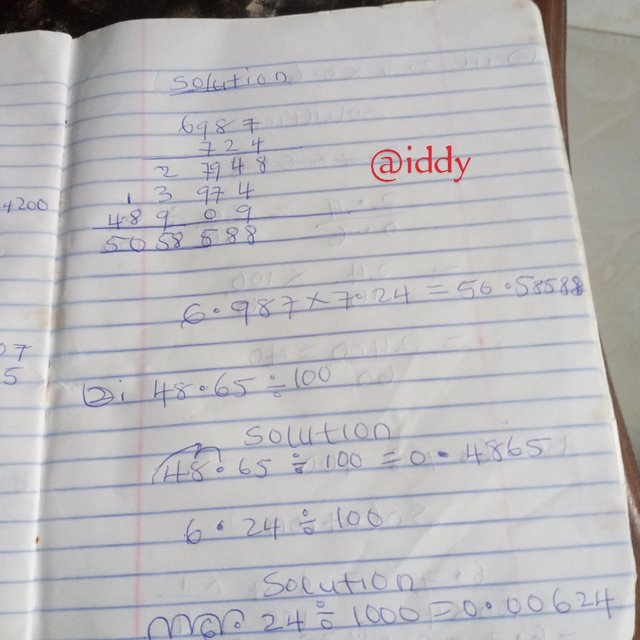 Solution
6987
724
@iddy
27948
4200
1 3 974
48909
5058588
6.987×7.24=50.58588
07
5
2i 48.65÷100
Solution
48.65÷100=0.4865
6.24÷100
Solution
24÷1000=0.00624